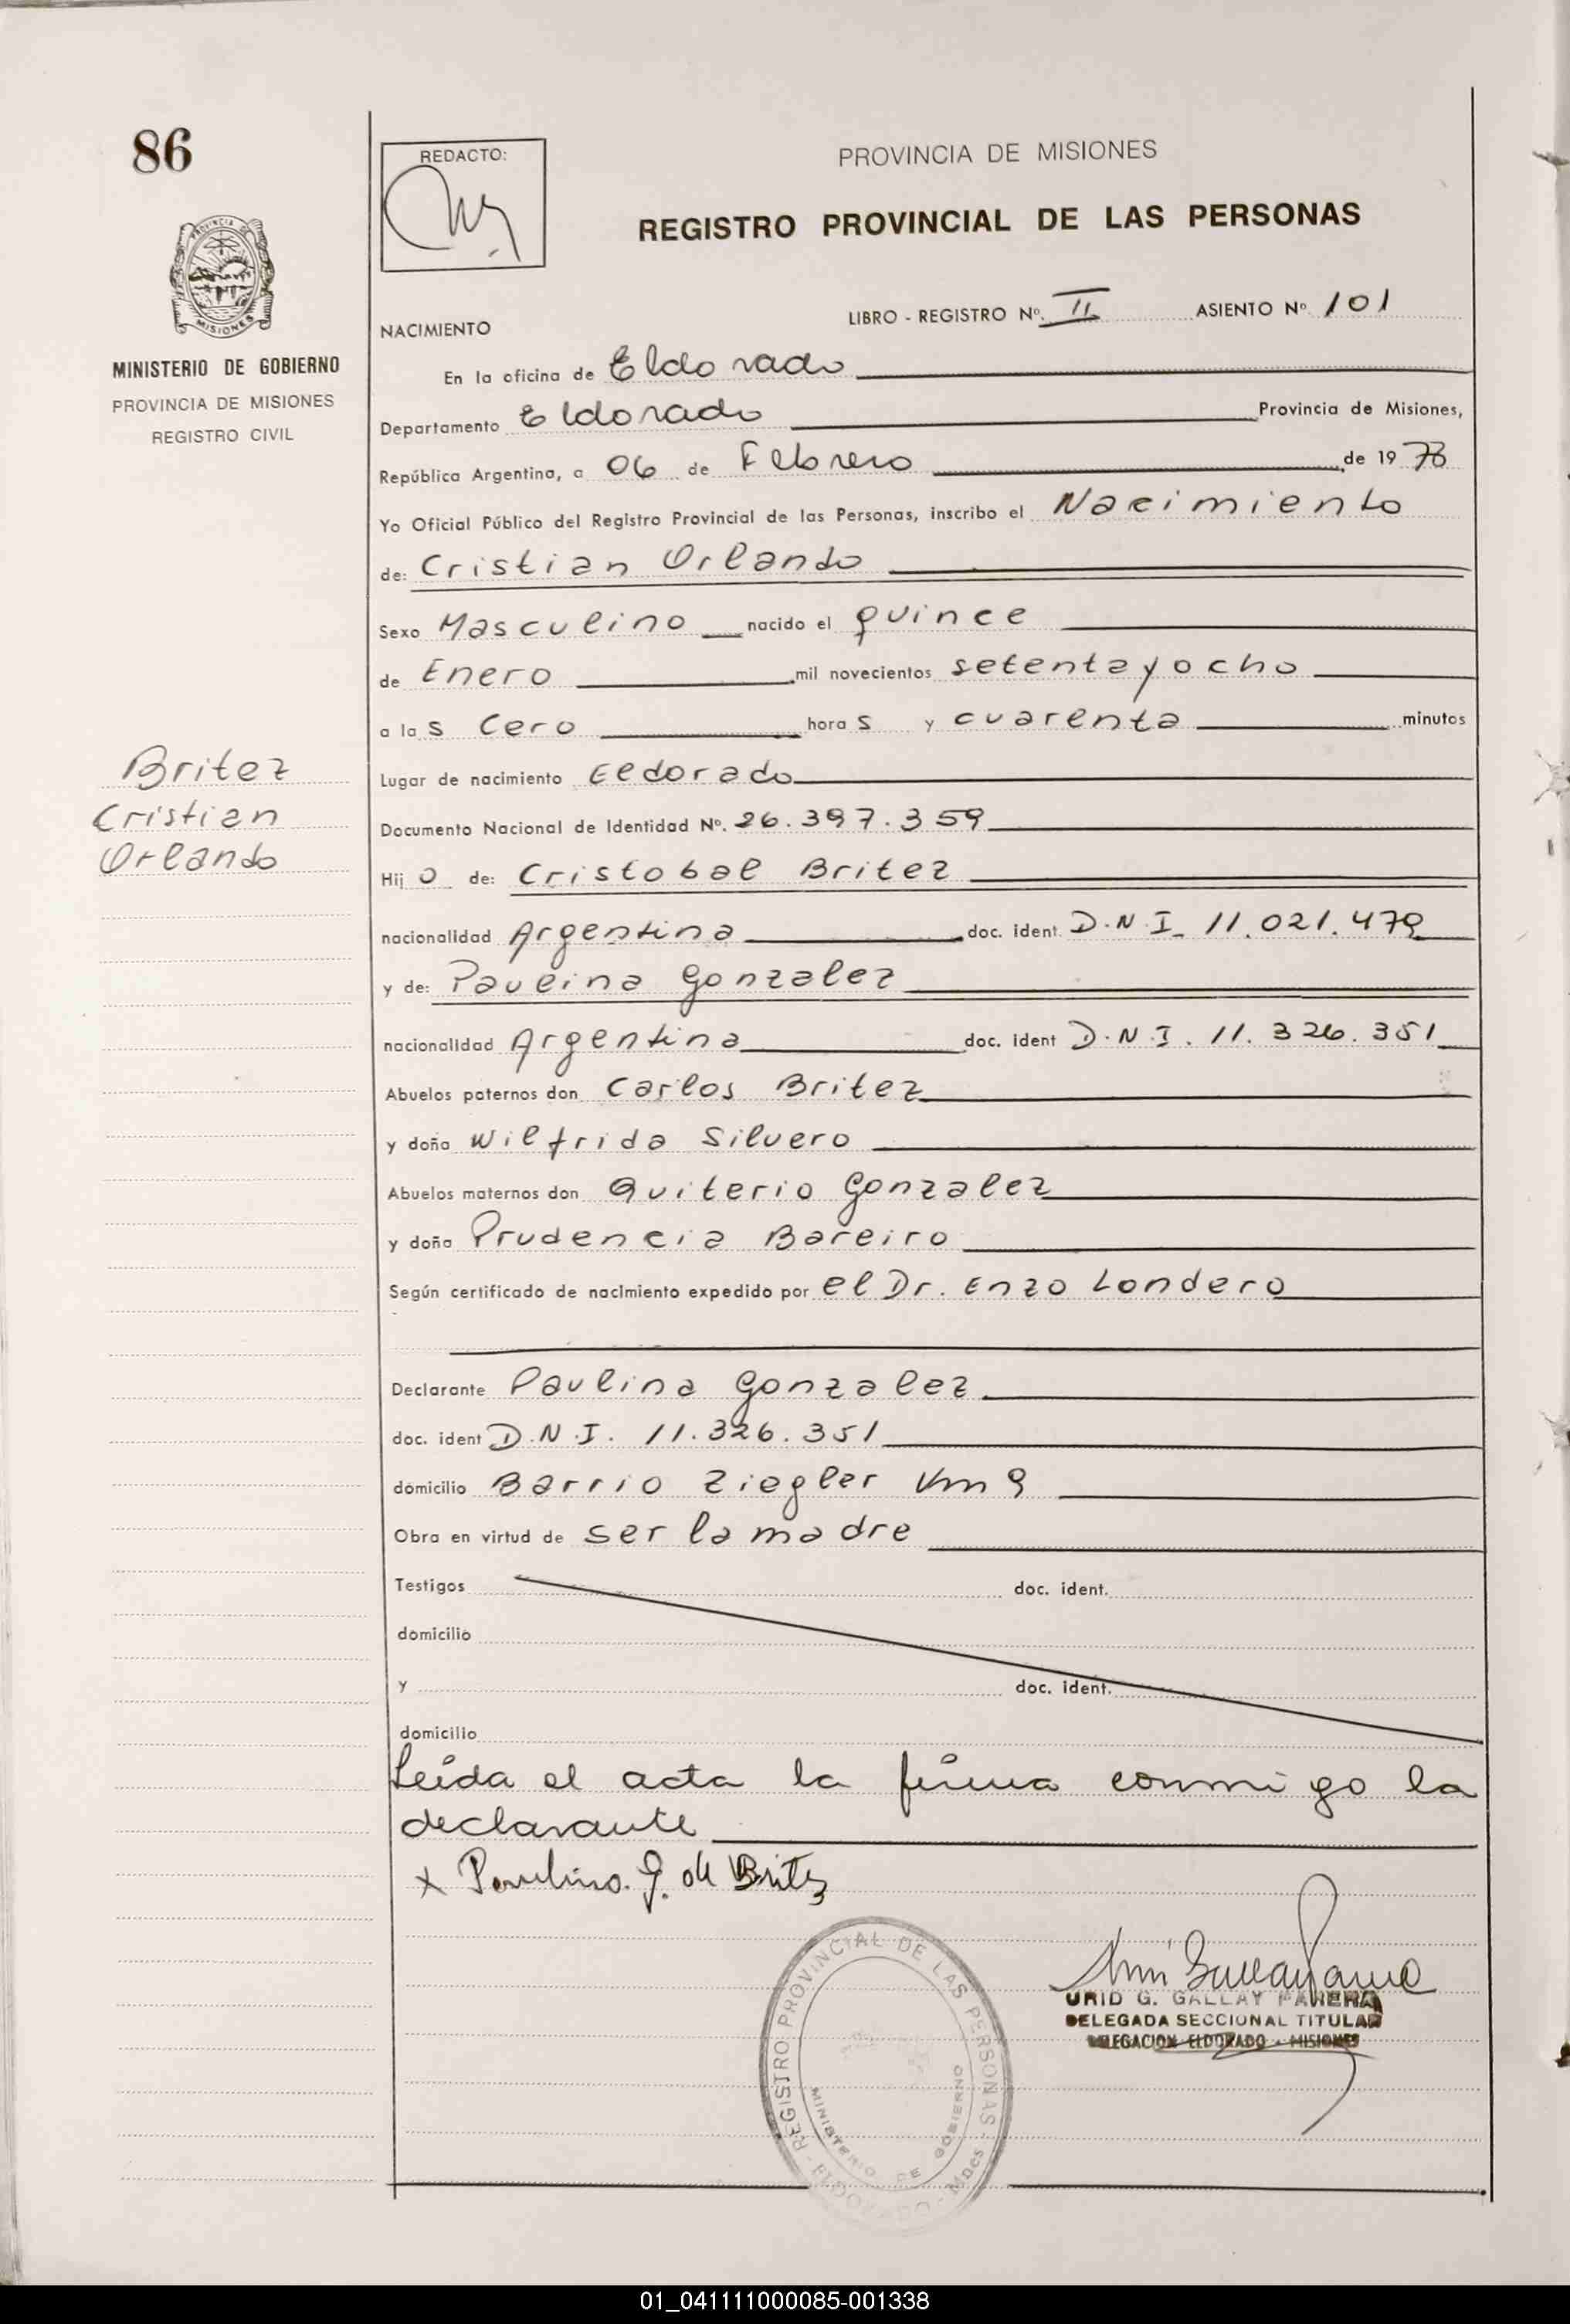 86
REDACTO:
PROVINCIA DE MISIONES
REGISTRO PROVINCIAL DE LAS PERSONAS
PROVINCIA DE
MISIONES
MINISTERIO DE GOBIERNO
PROVINCIA DE MISIONES
REGISTRO CIVIL
LIBRO - REGISTRO Nº. II ASIENTO Nº 101
NACIMIENTO
En la oficina de Eldorado
Departamento Eldorado Provincia de Misiones,
República Argentina, a 06 de Febrero de 1978
Yo Oficial Público del Registro Provincial de las Personas, inscribo el Nacimiento
de: Cristian Orlando
Sexo Masculino nacido el quince
de Enero mil novecientos setenta y ocho
a las cero horas y cuarenta minutos
Britez
Cristian
Orlando
Lugar de nacimiento Eldorado
Documento Nacional de Identidad Nº. 26.397.359
Hijo de: Cristobal Britez
nacionalidad Argentina doc. ident. D.N.I. 11.021.479
y de: Paulina Gonzalez
nacionalidad Argentina doc. ident D.N.I. 11.326.351
Abuelos paternos don Carlos Britez
y doña Wilfrida Silvero
Abuelos maternos don Quiterio Gonzalez
y doña Prudencia Bareiro
Según certificado de nacimiento expedido por el Dr. Enzo Londero
Declarante Paulina Gonzalez
doc. ident D.N.I. 11.326.351
domicilio Barrio Ziegler Km 9
Obra en virtud de ser la madre
Testigos doc. ident.
domicilio
y doc. ident.
domicilio
Leída el acta la firma conmigo la
declarante
x Paulina G. de Britez
URID G. GALLAY PARERA
DELEGADA SECCIONAL TITULAR
DELEGACION ELDORADO - MISIONES
REGISTRO PROVINCIAL DE LAS PERSONAS - ELDORADO - Mnes
MINISTERIO DE GOBIERNO
01_041111000085-001338